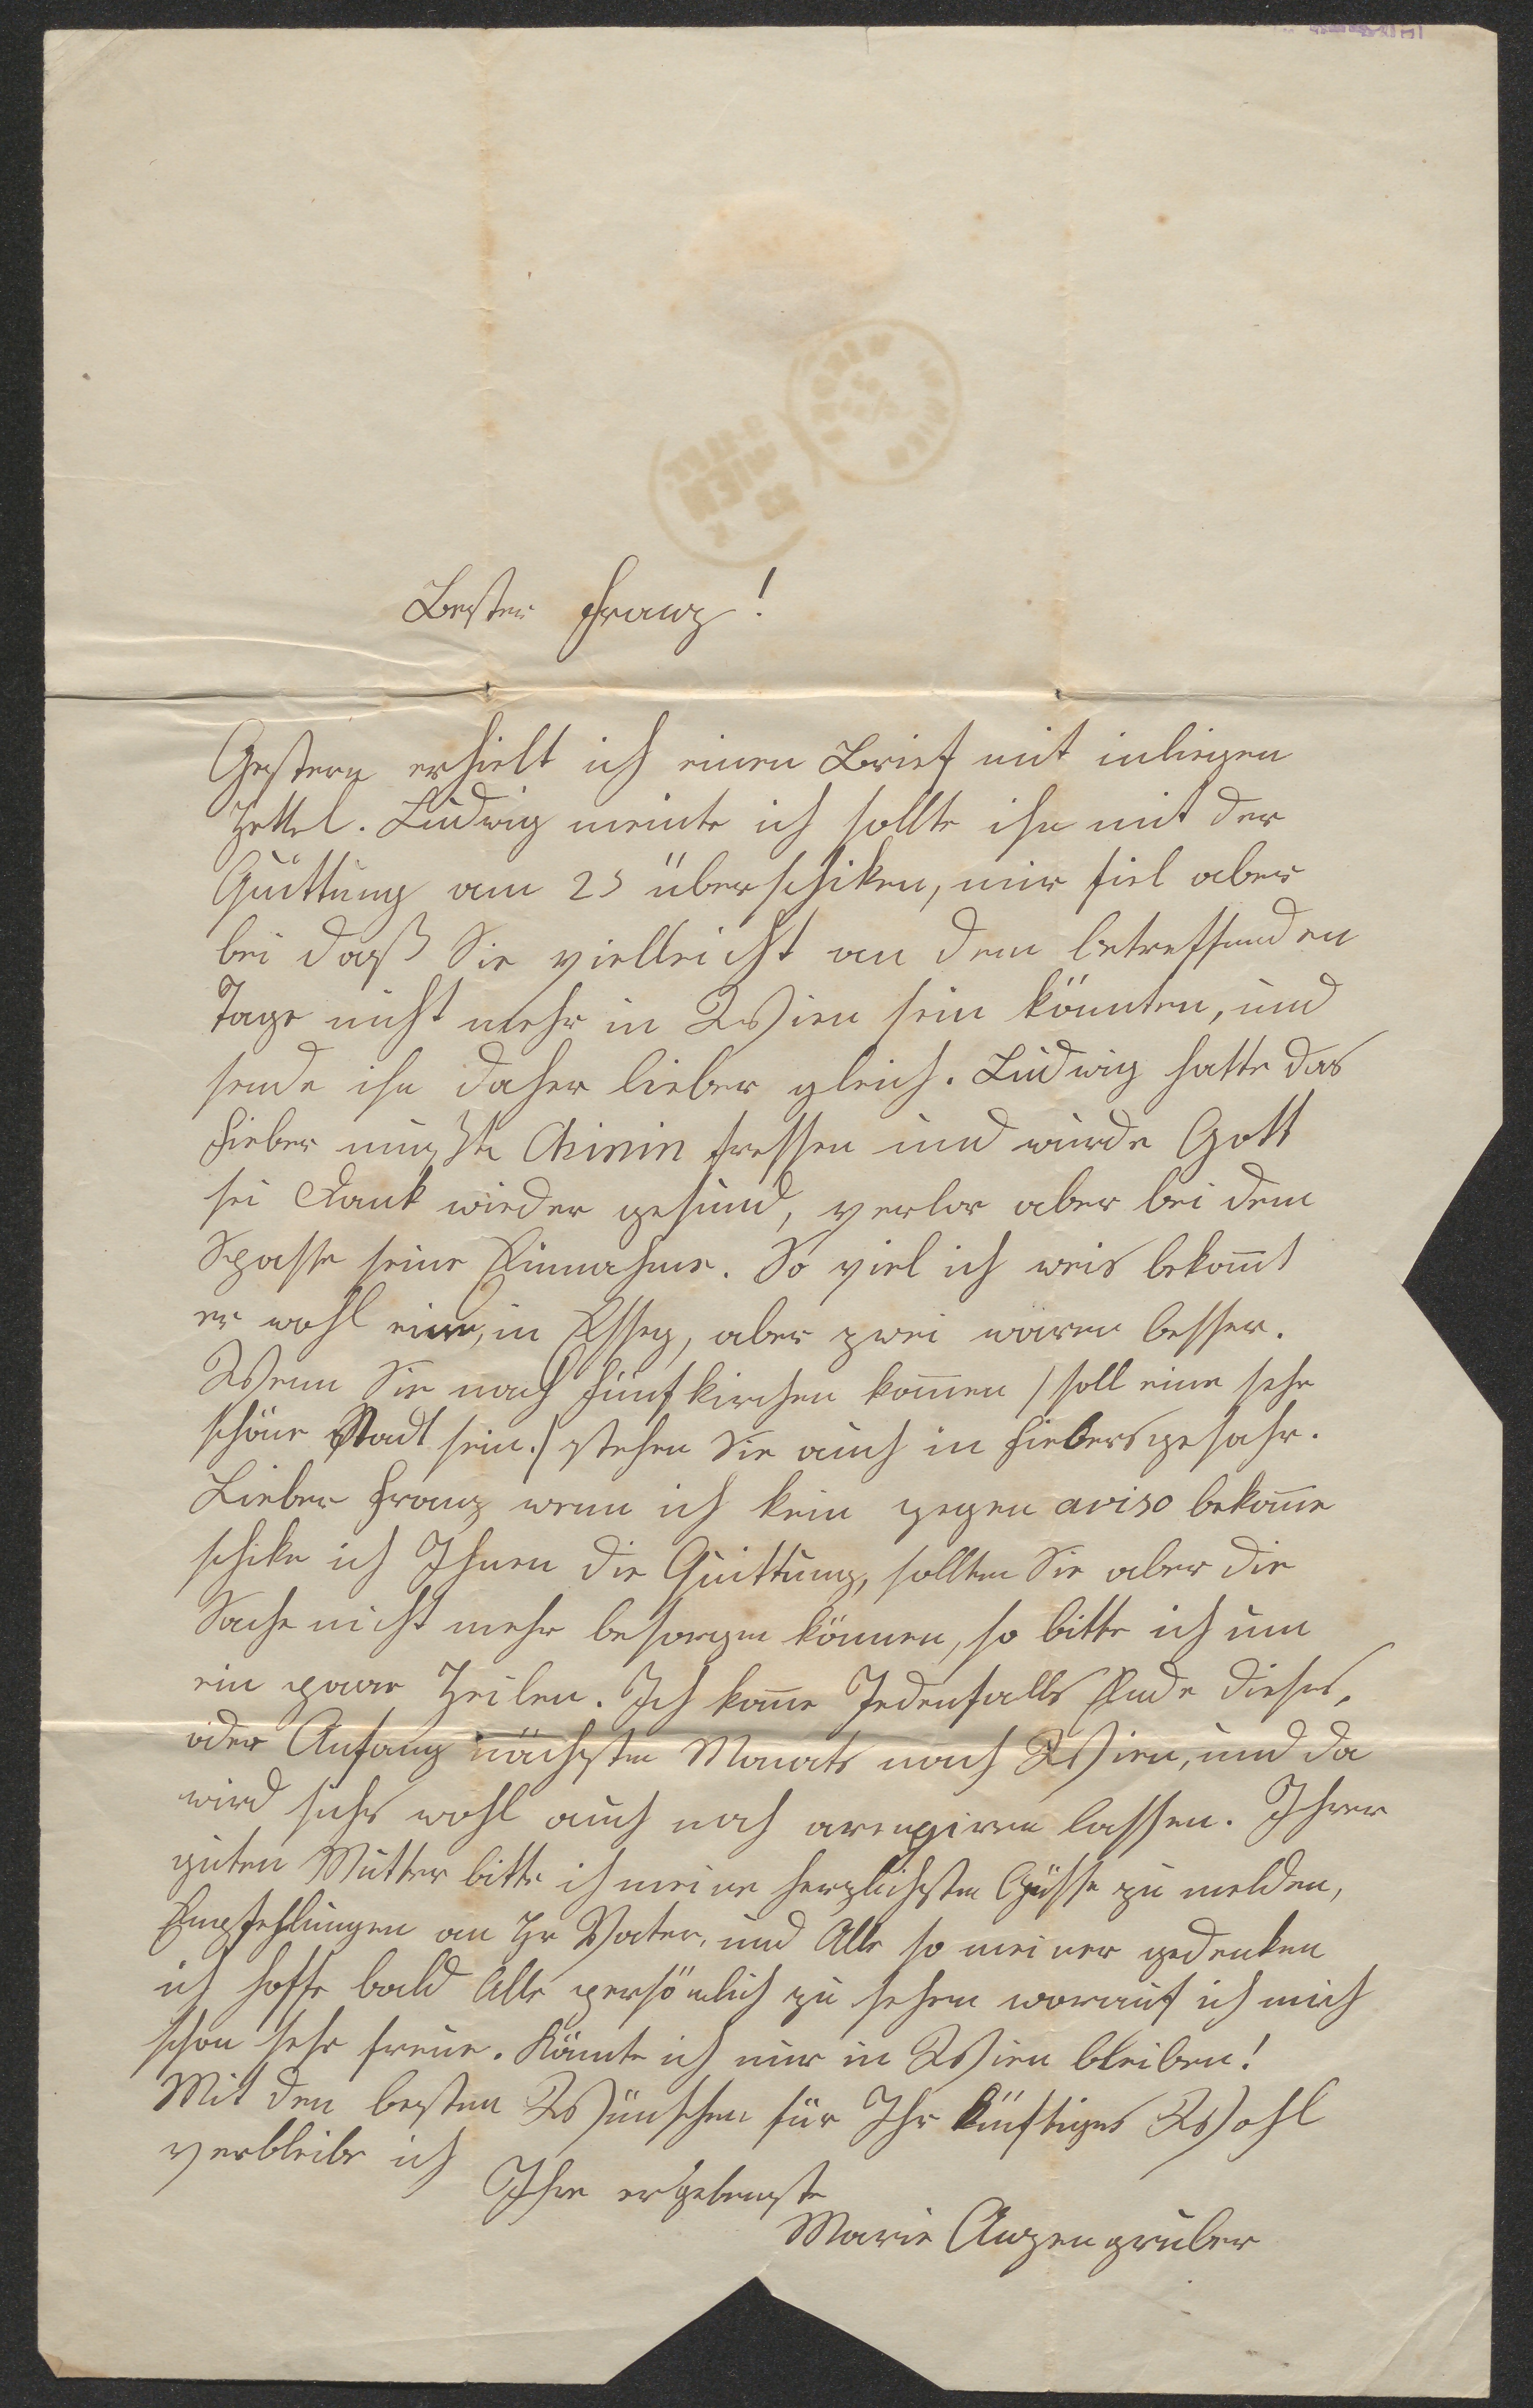 Bester Franz!
Gestern erhielt ich einen Brief mit inliegen
Zettel. Ludwig meinte ich sollte ihn mit der
Quittung am 25 überschiken, mir fiel aber
bei daß Sie vielleicht an dem betreffenden
Tage nicht mehr in Wien sein könnten, und
sende ihn daher lieber gleich. Ludwig hatte das
Fieber mußte Chinin fressen und wurde Gott
sei Dank wieder gesund, verlor aber bei dem
Spasse seine Einnahme. So viel ich weis bekom̅t
er wohl eine, in Esseg, aber zwei wären besser.
Wenn Sie nach Fünfkirchen kom̅en /soll eine sehr
schöne Stadt sein./ stehen Sie auch in Fiebersgefahr.
Lieber Franz wenn ich kein gegen aviso bekom̅e
schike ich Ihnen die Quittung, sollten Sie aber die
Sache nicht mehr besorgen können, so bitte ich um
ein paar Zeilen. Ich kom̅e Jedenfalls Ende dieses,
oder Anfang nächsten Monats nach Wien, und da
wird sichs wohl auch noch arengiren lassen. Ihrer
guten Mutter bitte ich meine herzlichsten Grüsse zu melden,
Empfehlungen an Hr Vater, und Alle so meiner gedenken
ich hoffe bald Alle persönlich zu sehen worauf ich mich
schon sehr freue. Könnte ich nur in Wien bleiben!
Mit den besten Wünschen für Ihr künftiges Wohl
verbleibe ich
Ihre ergebenste
Marie Anzengruber